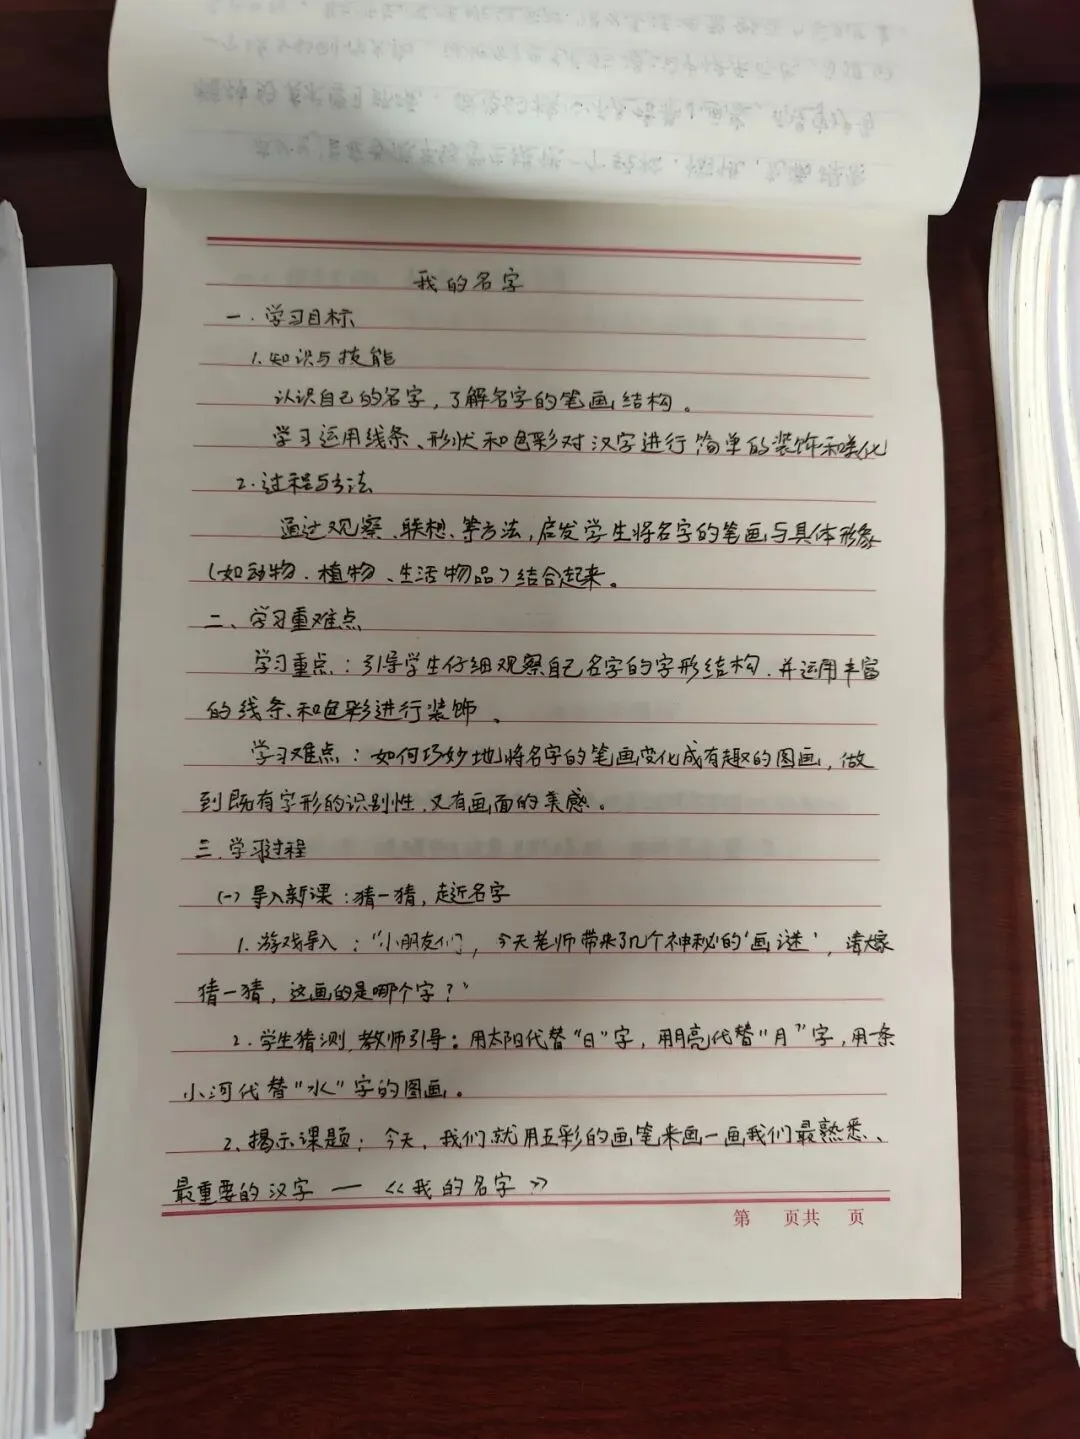 我的名字
一.学习目标
1.知识与技能
认识自己的名字，了解名字的笔画结构。
学习运用线条、形状和色彩对汉字进行简单的装饰和美化
2.过程与方法
通过观察、联想、等方法，启发学生将名字的笔画与具体形象
（如动物、植物、生活物品）结合起来。
二、学习重难点
学习重点：引导学生仔细观察自己名字的字形结构.并运用丰富
的线条、和色彩进行装饰。
学习难点：如何巧妙地将名字的笔画变化成有趣的图画，做
到既有字形的识别性，又有画面的美感。
三.学习过程
(一)导入新课：猜一猜，走近名字
1.游戏导入：“小朋友们，今天老师带来了几个神秘的‘画谜’，请大家
猜一猜，这画的是哪个字？”
2.学生猜测，教师引导：用太阳代替“日”字，用月亮代替“月”字，用一条
小河代替“水”字的图画。
2.揭示课题：今天，我们就用五彩的画笔来画一画我们最熟悉、
最重要的汉字 — 《我的名字》
第 页共 页